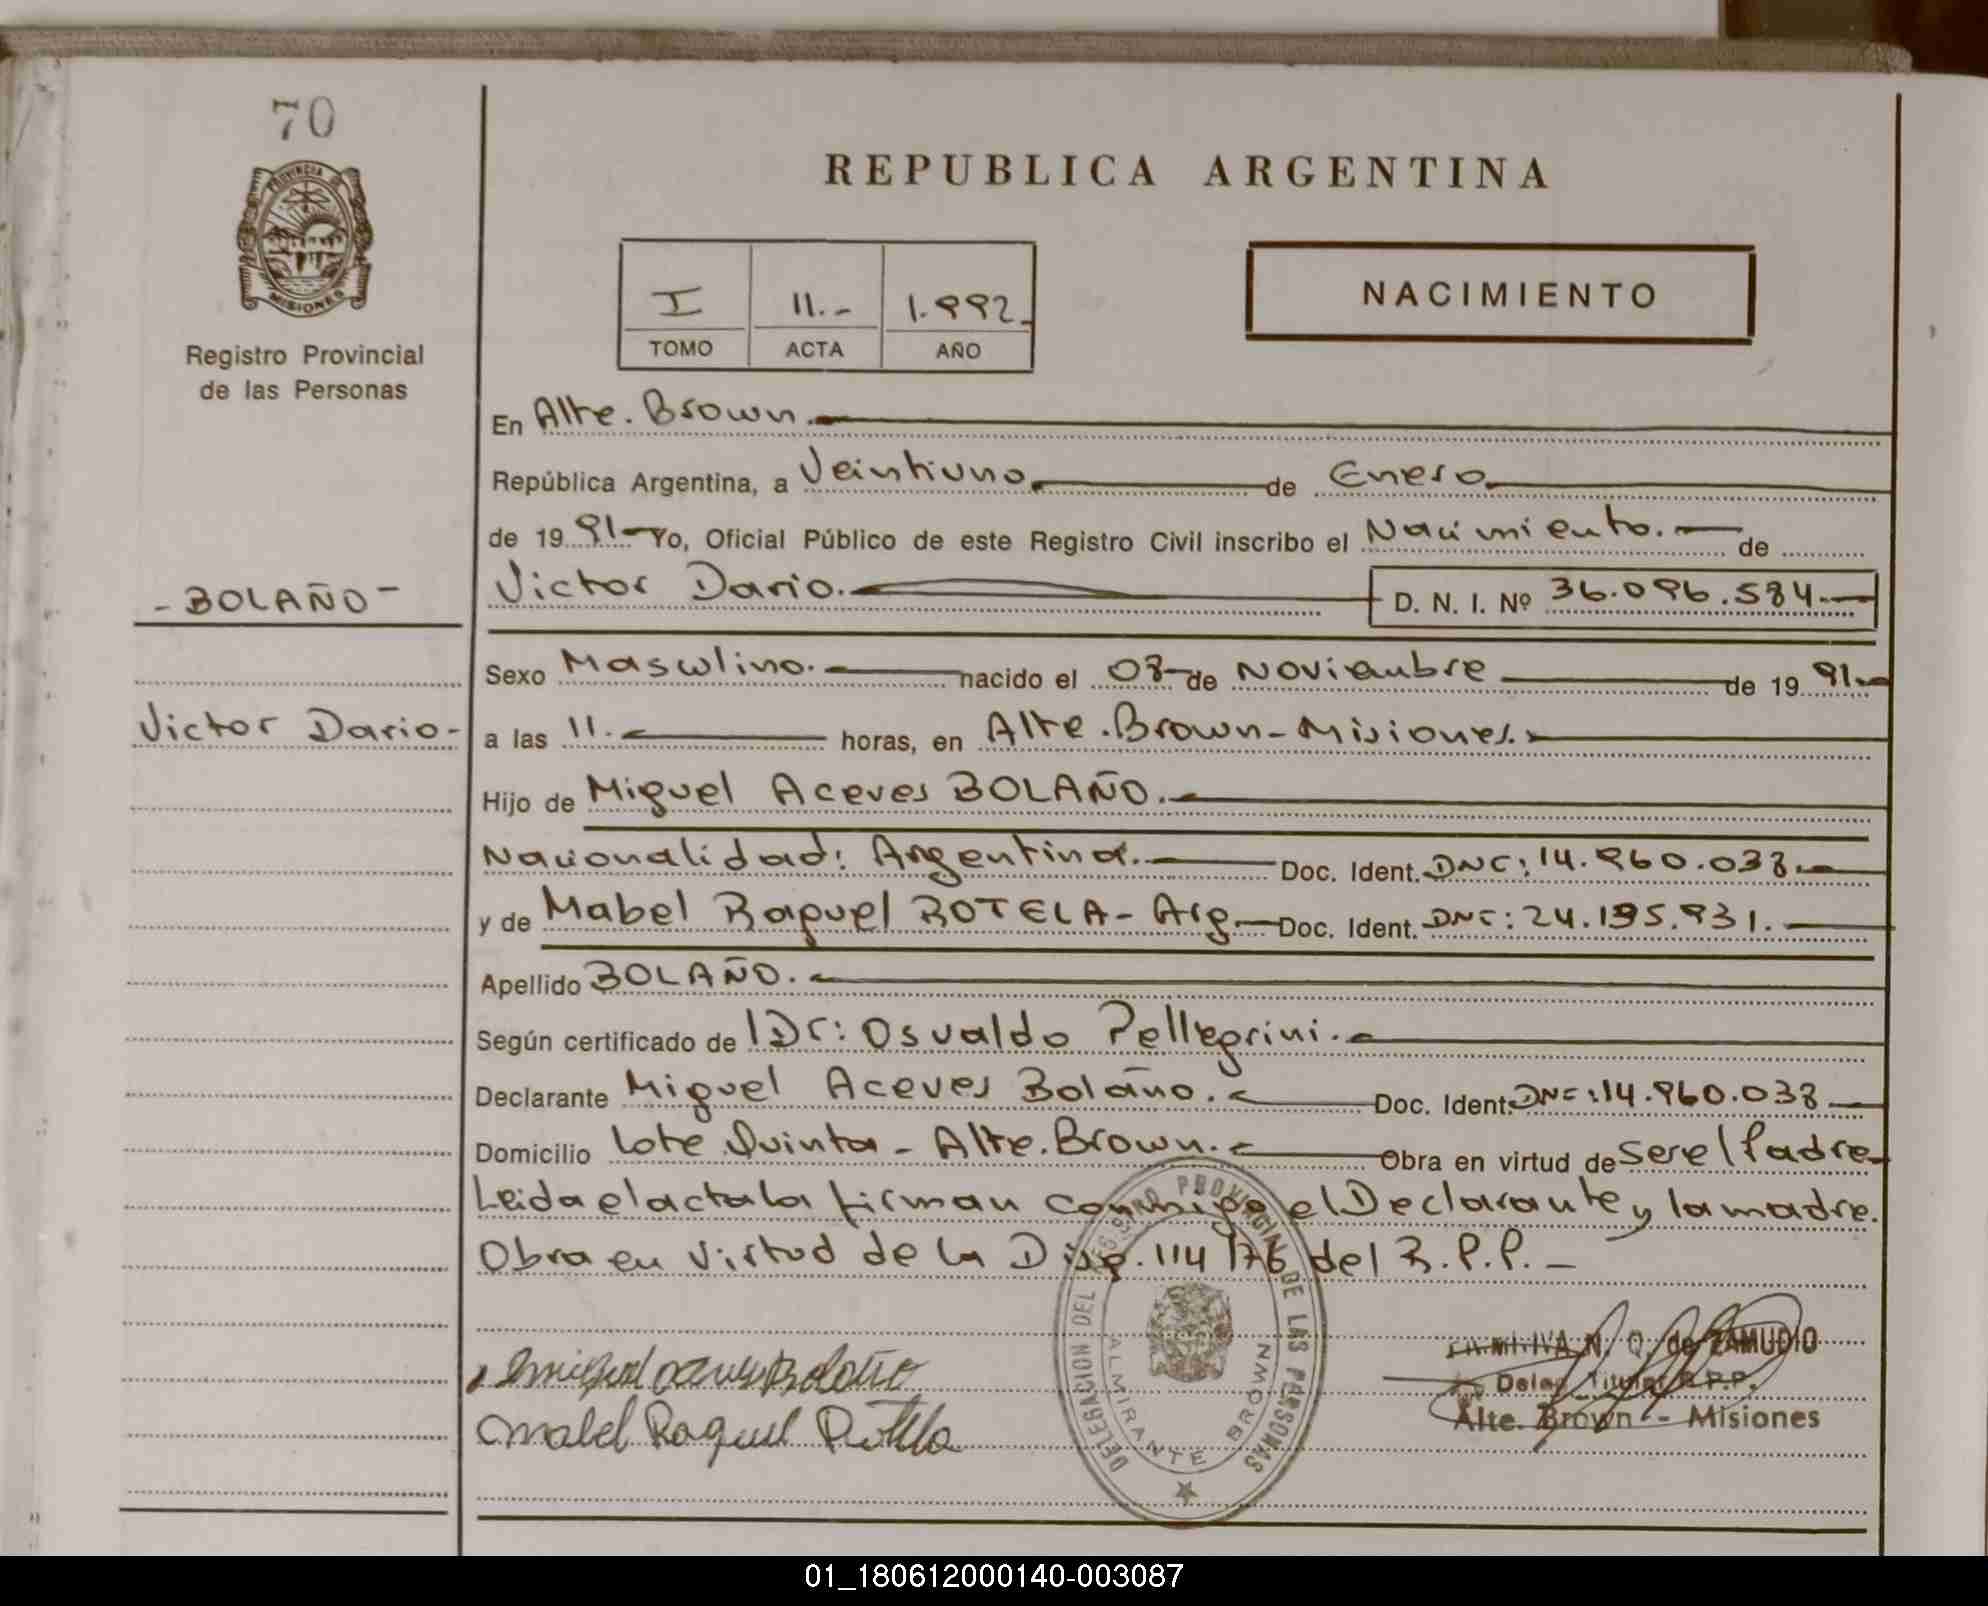 70
PROVINCIA DE
MISIONES
Registro Provincial
de las Personas
REPUBLICA ARGENTINA
I 11.- 1.992.
TOMO ACTA AÑO
NACIMIENTO
En Alte. Brown.
República Argentina, a Veintiuno de Enero
de 19 91- Yo, Oficial Público de este Registro Civil inscribo el Nacimiento. de
- BOLAÑO -
Victor Dario. D. N. I. Nº 36.096.584.
Sexo Masculino. nacido el 08 de Noviembre de 19 91.
Victor Dario-
a las 11. horas, en Alte. Brown - Misiones.
Hijo de Miguel Aceves BOLAÑO.
Nacionalidad: Argentina. Doc. Ident. DNI: 14.960.038.
y de Mabel Raquel ROTELA - Arg. Doc. Ident. DNI: 24.195.931.
Apellido BOLAÑO.
Según certificado de Dr: Osvaldo Pellegrini.
Declarante Miguel Aceves Bolaño. Doc. Ident. DNI: 14.960.038
Domicilio Lote Quinta - Alte. Brown. Obra en virtud de ser el Padre
Leida el acta la firman conmigo el Declarante y la madre.
Obra en virtud de la Disp. 114/76 del R.P.P. -
Miguel Aceves Bolaño
Mabel Raquel Rotela
DELEGACION DEL REGISTRO PROVINCIAL DE LAS PERSONAS
ALMIRANTE BROWN
N. Q. de ZAMUDIO
Deleg. Titular R.P.P.
Alte. Brown - Misiones
01_180612000140-003087